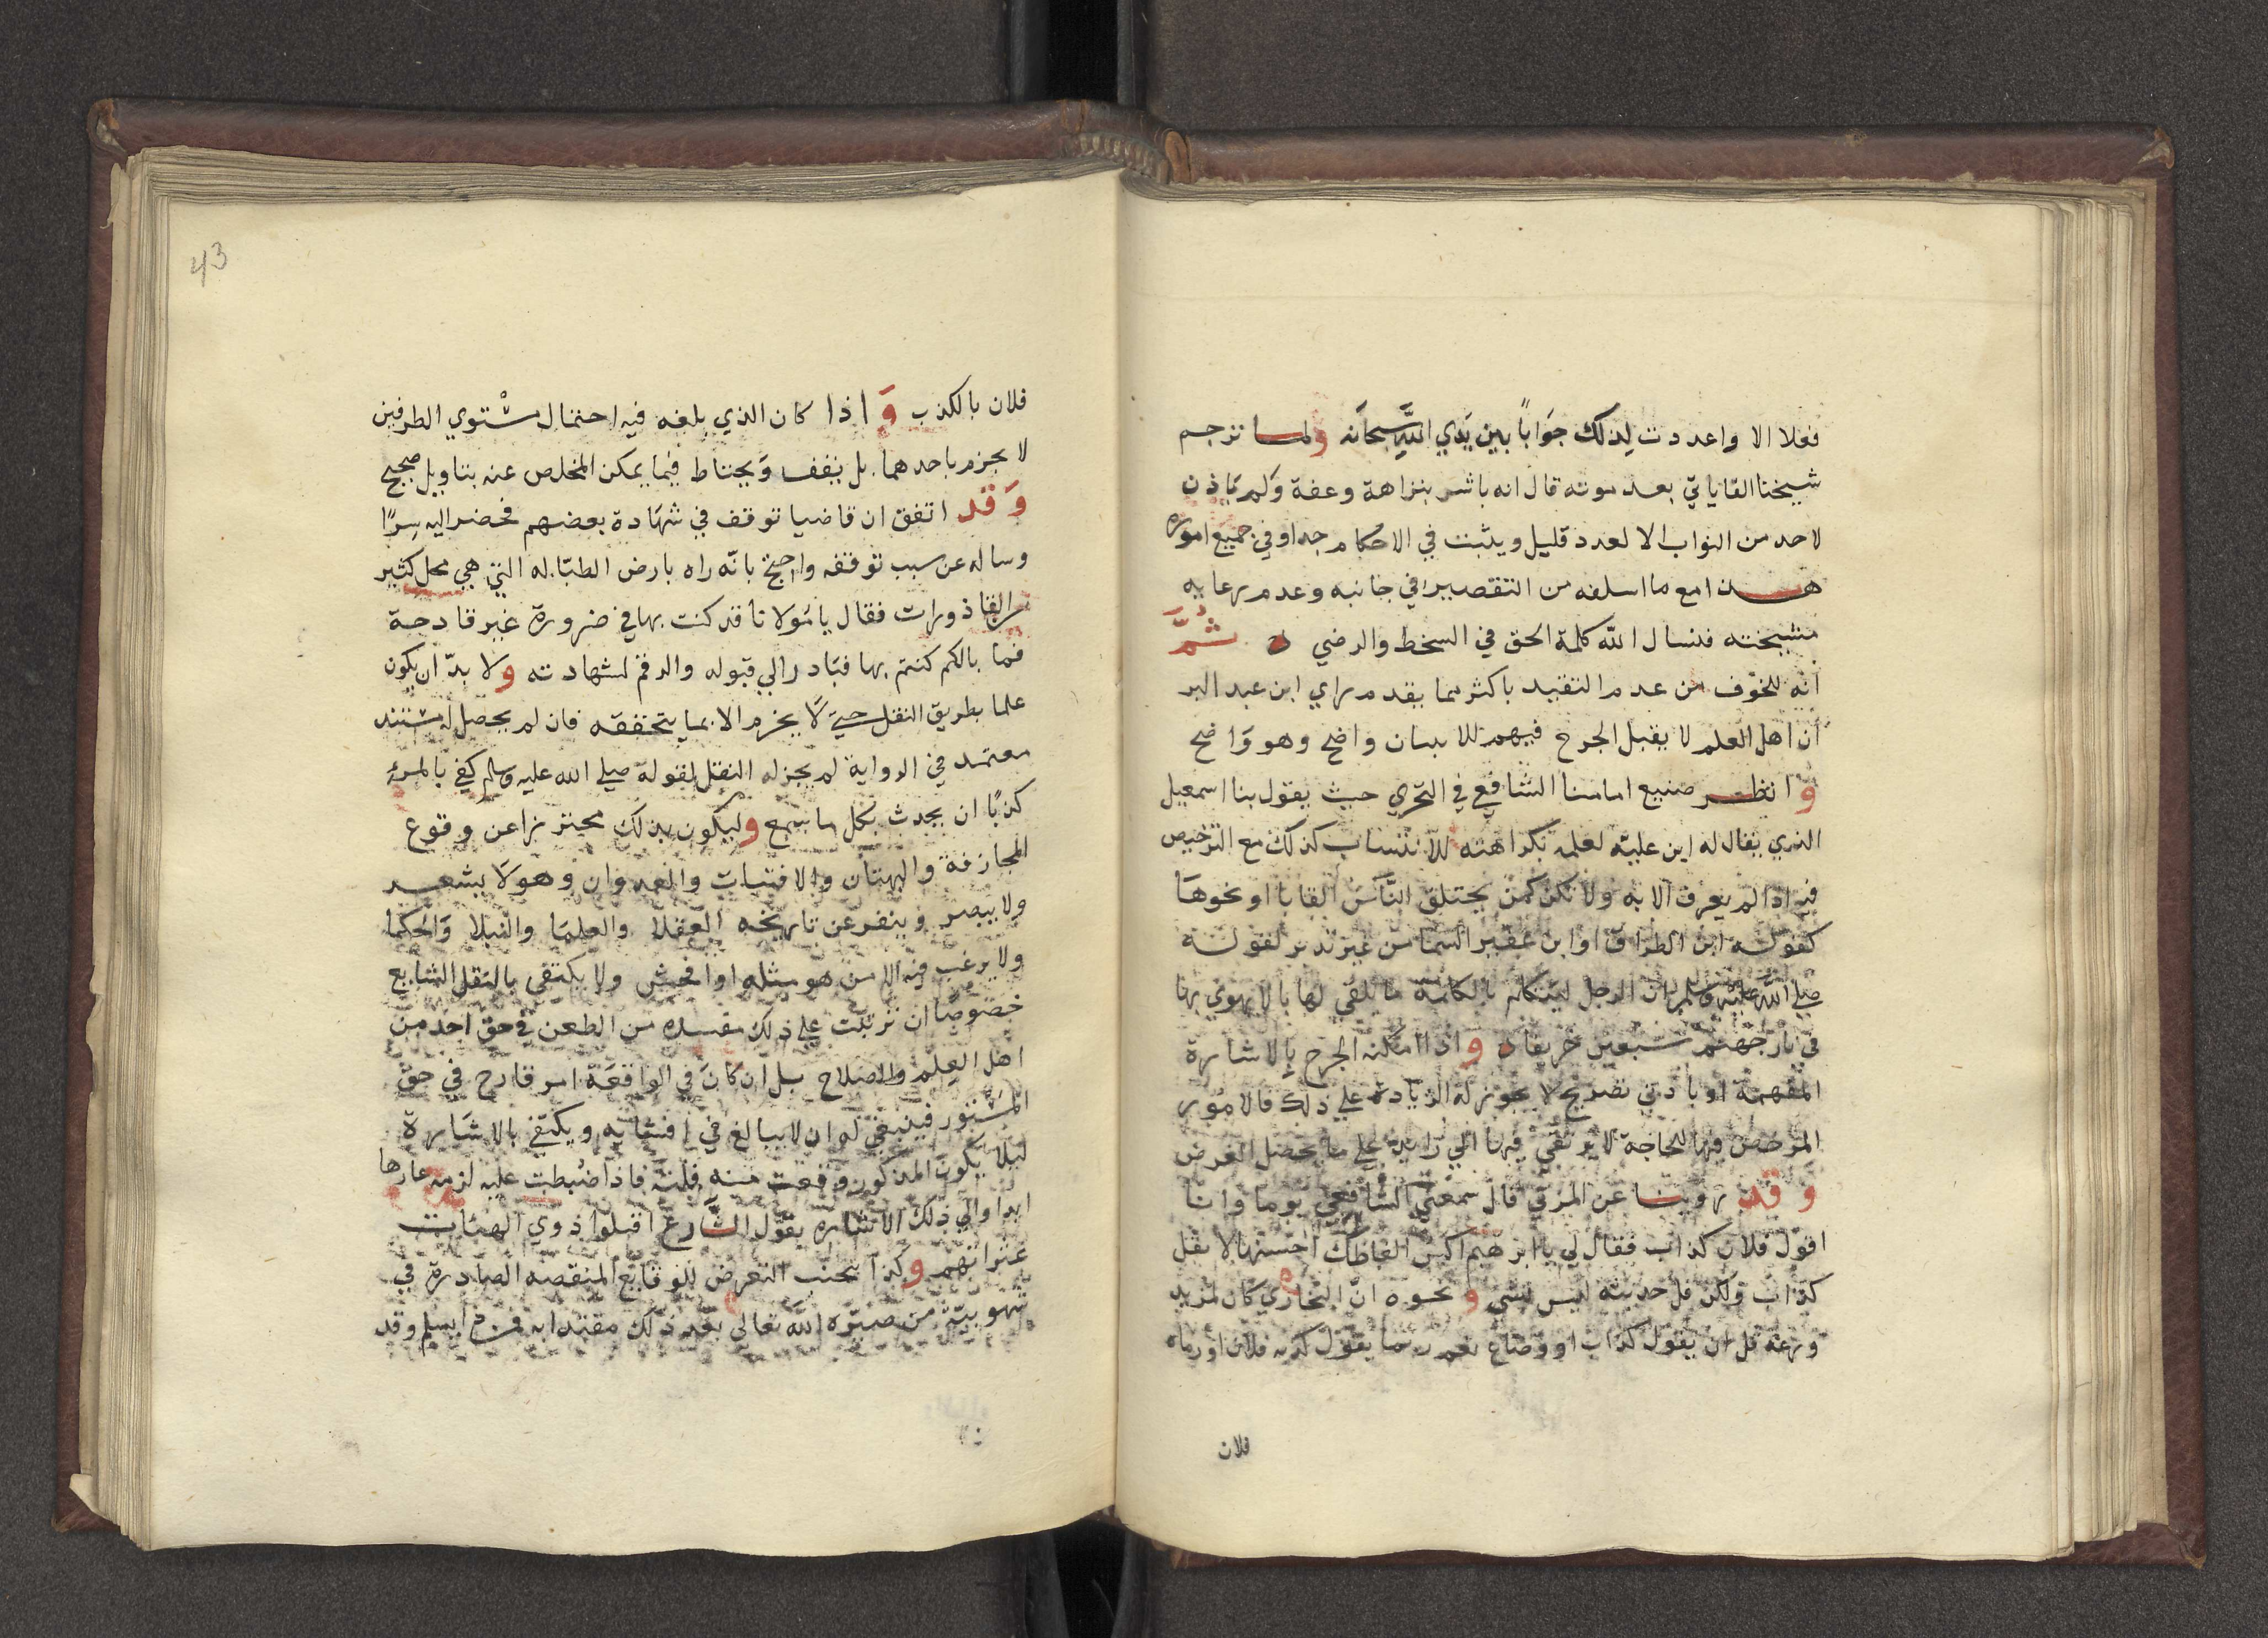 فعلا الا واعددت لذلك جوَابًا بين يَدي اللَّه سبحانه ولما ترجم
شيخنا القاياتيّ بعد موته قال انه باشر بنزاهة وعفة وَلم يَاذن
لاحد من النواب الا لعدد قليل ويثبت في الاحكام جدا وفي جميع اموره
هذا مع ما اسلفه من التقصير في جانبه وعدم رعايه
مشيخته فنسال اللّه كلمة الحق في السخط والرضي ثُمَّ
انّه للخوف من عدم التقيد باكثر مما يقدم راي ابن عبد البر
أن اهل العلم لا يقبل الجرح فيهم الا ببيان واضح وهو وَاضح
وَانظر صنيع امامنا الشافعي في التحري حيث يقول بنا اسمعيل
الذي يقال له ابن عليّه لعلمه بكراهته للانتساب كذلك مع الترخيص
فيه اذا لم يعرف الا به ولا تكن كمن يختلق النّاس القابا او نحوهَا
كقوله ابن الطراق او ابن عقير السما من غير تدبر لقوله
صلي اللّه عليه وسلم ان الرجل ليتكلم بالكلمة ما يلقي لها بالا يهوي بها
في نار جهنم سبعين خريفا واذا امكنه الجرح بالاشارة
المفهمة او بادني تصريح لا يجوز له الزيادة علي ذلك فالامور
المرخص فيها للحاجة لا يرتقي فيها الي زايد علي ما يحصل الغرض
وَقد روينا عن المزني قال سمعني الشافعي يوما وانا
اقول فلان كذاب فقال لي يا ابرهيم اكس الفاظك احسنها لا تقل
كذاب ولكن قل حديثه ليس بشي ونحوه انّ البخاري كان لمزيد
ورعه قل ان يقول كذاب او وضاع نعم ربما يقول كذبه فلان او رماه
فلان
43
فلان بالكذب وَاذا كان الذي بلغه فيه احتمال مستوي الطرفين
لا يجزم باحدهما بل يقف وَيحتاط فيما يمكن المخلص عنه بتاويل صحيح
وَقد اتفق ان قاضيا توقف في شهادة بعضهم فحضر اليه سِرًّا
وساله عن سبب توقفه واحتج بانّه راه بارض الطبّاله التي هي محل كثير
من القاذورات فقال يا مَولانا قد كنت بها في ضرورة غير قادحة
فما بالكم كنتم بها فبَادر الي قبوله والرقم لشهادته ولا بدّ ان يكون
علما بطريق النقل حتي لا يجزم الا بما يتحققه فان لم يحصل له مستند
معتمد في الرواية لم يجز له النقل لقوله صلي الله عليه وسلم كفي بالمرء
كذبًا ان يحدث بكل ما سمع وليكون بذلك محترزا عن وقوع
المجازفة والبهتان والافتيات والعدوان وهو لا يشعر
ولا يبصر وينفر عن تاريخه العقلا والعلما والنبلا وَالحكما
ولا يرغب فيه الا من هو مثله او افحش ولا يكتفي بالنقل الشايع
خصوصًا ان ترتبت علي ذلك مفسدة من الطعن في حق احد من
اهل العِلم والصلاح بل ان كانَ في الواقعَة امر قادح في حق
المستور فينبغي له ان لا يبالغ في افشايه ويكتفي بالاشَارة
ليلا يكون المذكور وقعت منه فلتة فاذا ضُبطت عليه لزمه عارها
ابدا والي ذلك الاشاره يقول الشارع اقبلوا ذوي الهيئات
عثراتهم وكذا يتجنب التعرض للوقايع المنقصه الصادرة في
شهوبية من صيّره اللّه تعالى بعد ذلك مقتدا به فمن ذا يسلم وقد